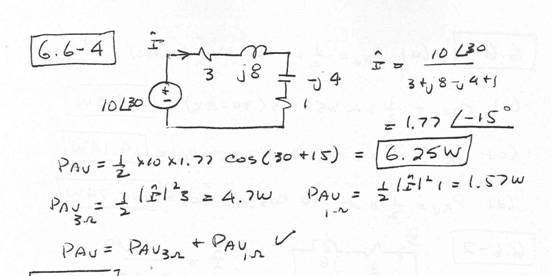 6.6-4
Î
3 j8
-j4
1
10∠30
+
-
Î = 10∠30 / 3+j8-j4+1
= 1.77 ∠-15°
PAV = 1/2 ×10×1.77 cos(30+15) = 6.25W
PAV3Ω = 1/2 |Î|² 3 = 4.7W PAV1Ω = 1/2 |Î|² 1 = 1.57W
PAV = PAV3Ω + PAV1Ω ✓